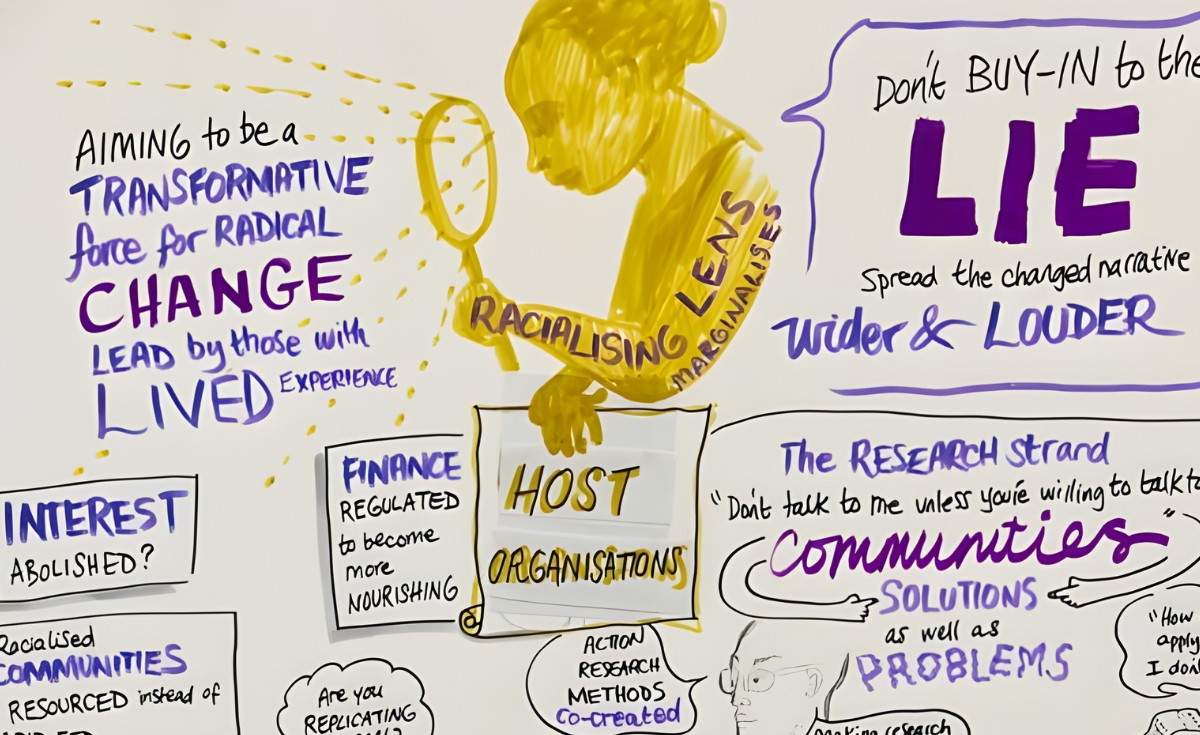 AIMING to be a
TRANSFORMATIVE
force for RADICAL
CHANGE
LEAD by those with
LIVED EXPERIENCE
RACIALISING LENS
MARGINALISES
Don't BUY-IN to the
LIE
Spread the changed narrative
wider & LOUDER
INTEREST
ABOLISHED?
FINANCE
REGULATED
to become
more
NOURISHING
HOST
ORGANISATIONS
The RESEARCH Strand
"Don't talk to me unless you're willing to talk to
Communities"
SOLUTIONS
as well as
PROBLEMS
Racialised
COMMUNITIES
RESOURCED instead of
Are you
REPLICATING
ACTION
RESEARCH
METHODS
Co-created
"How
apply
I don't
making research